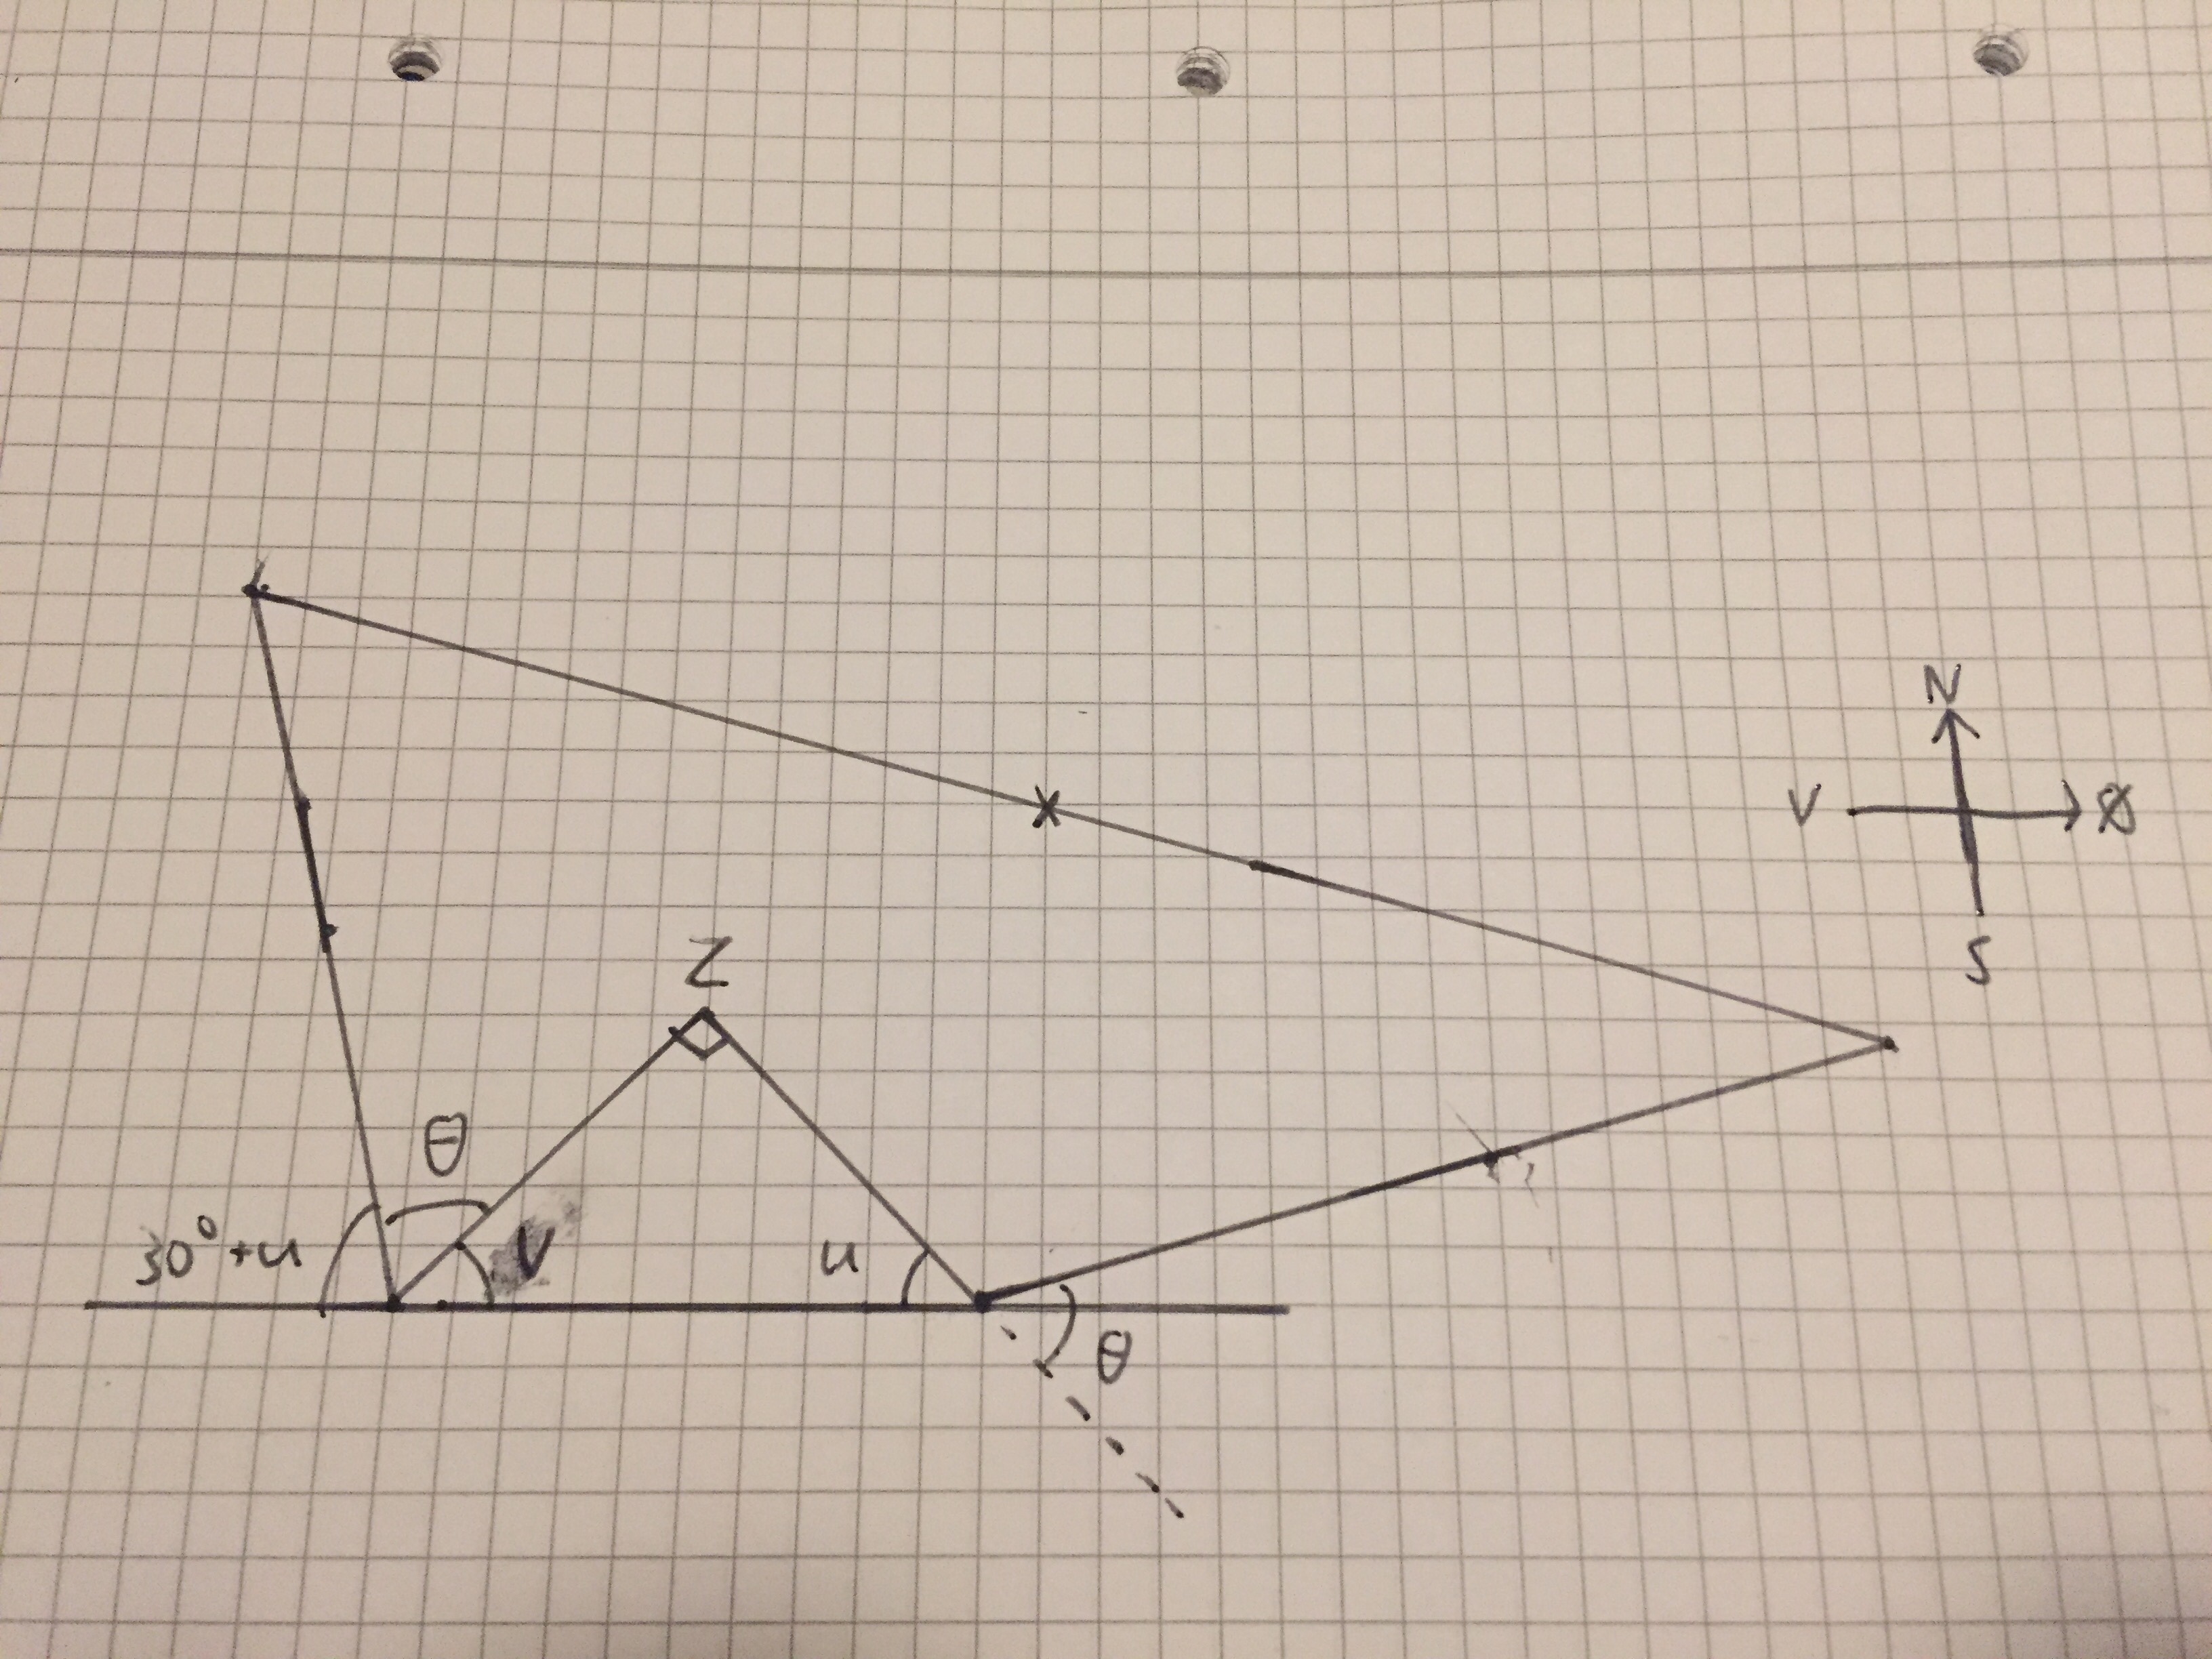 N
V Ø
S
Z
θ
30°+u
V
u
θ